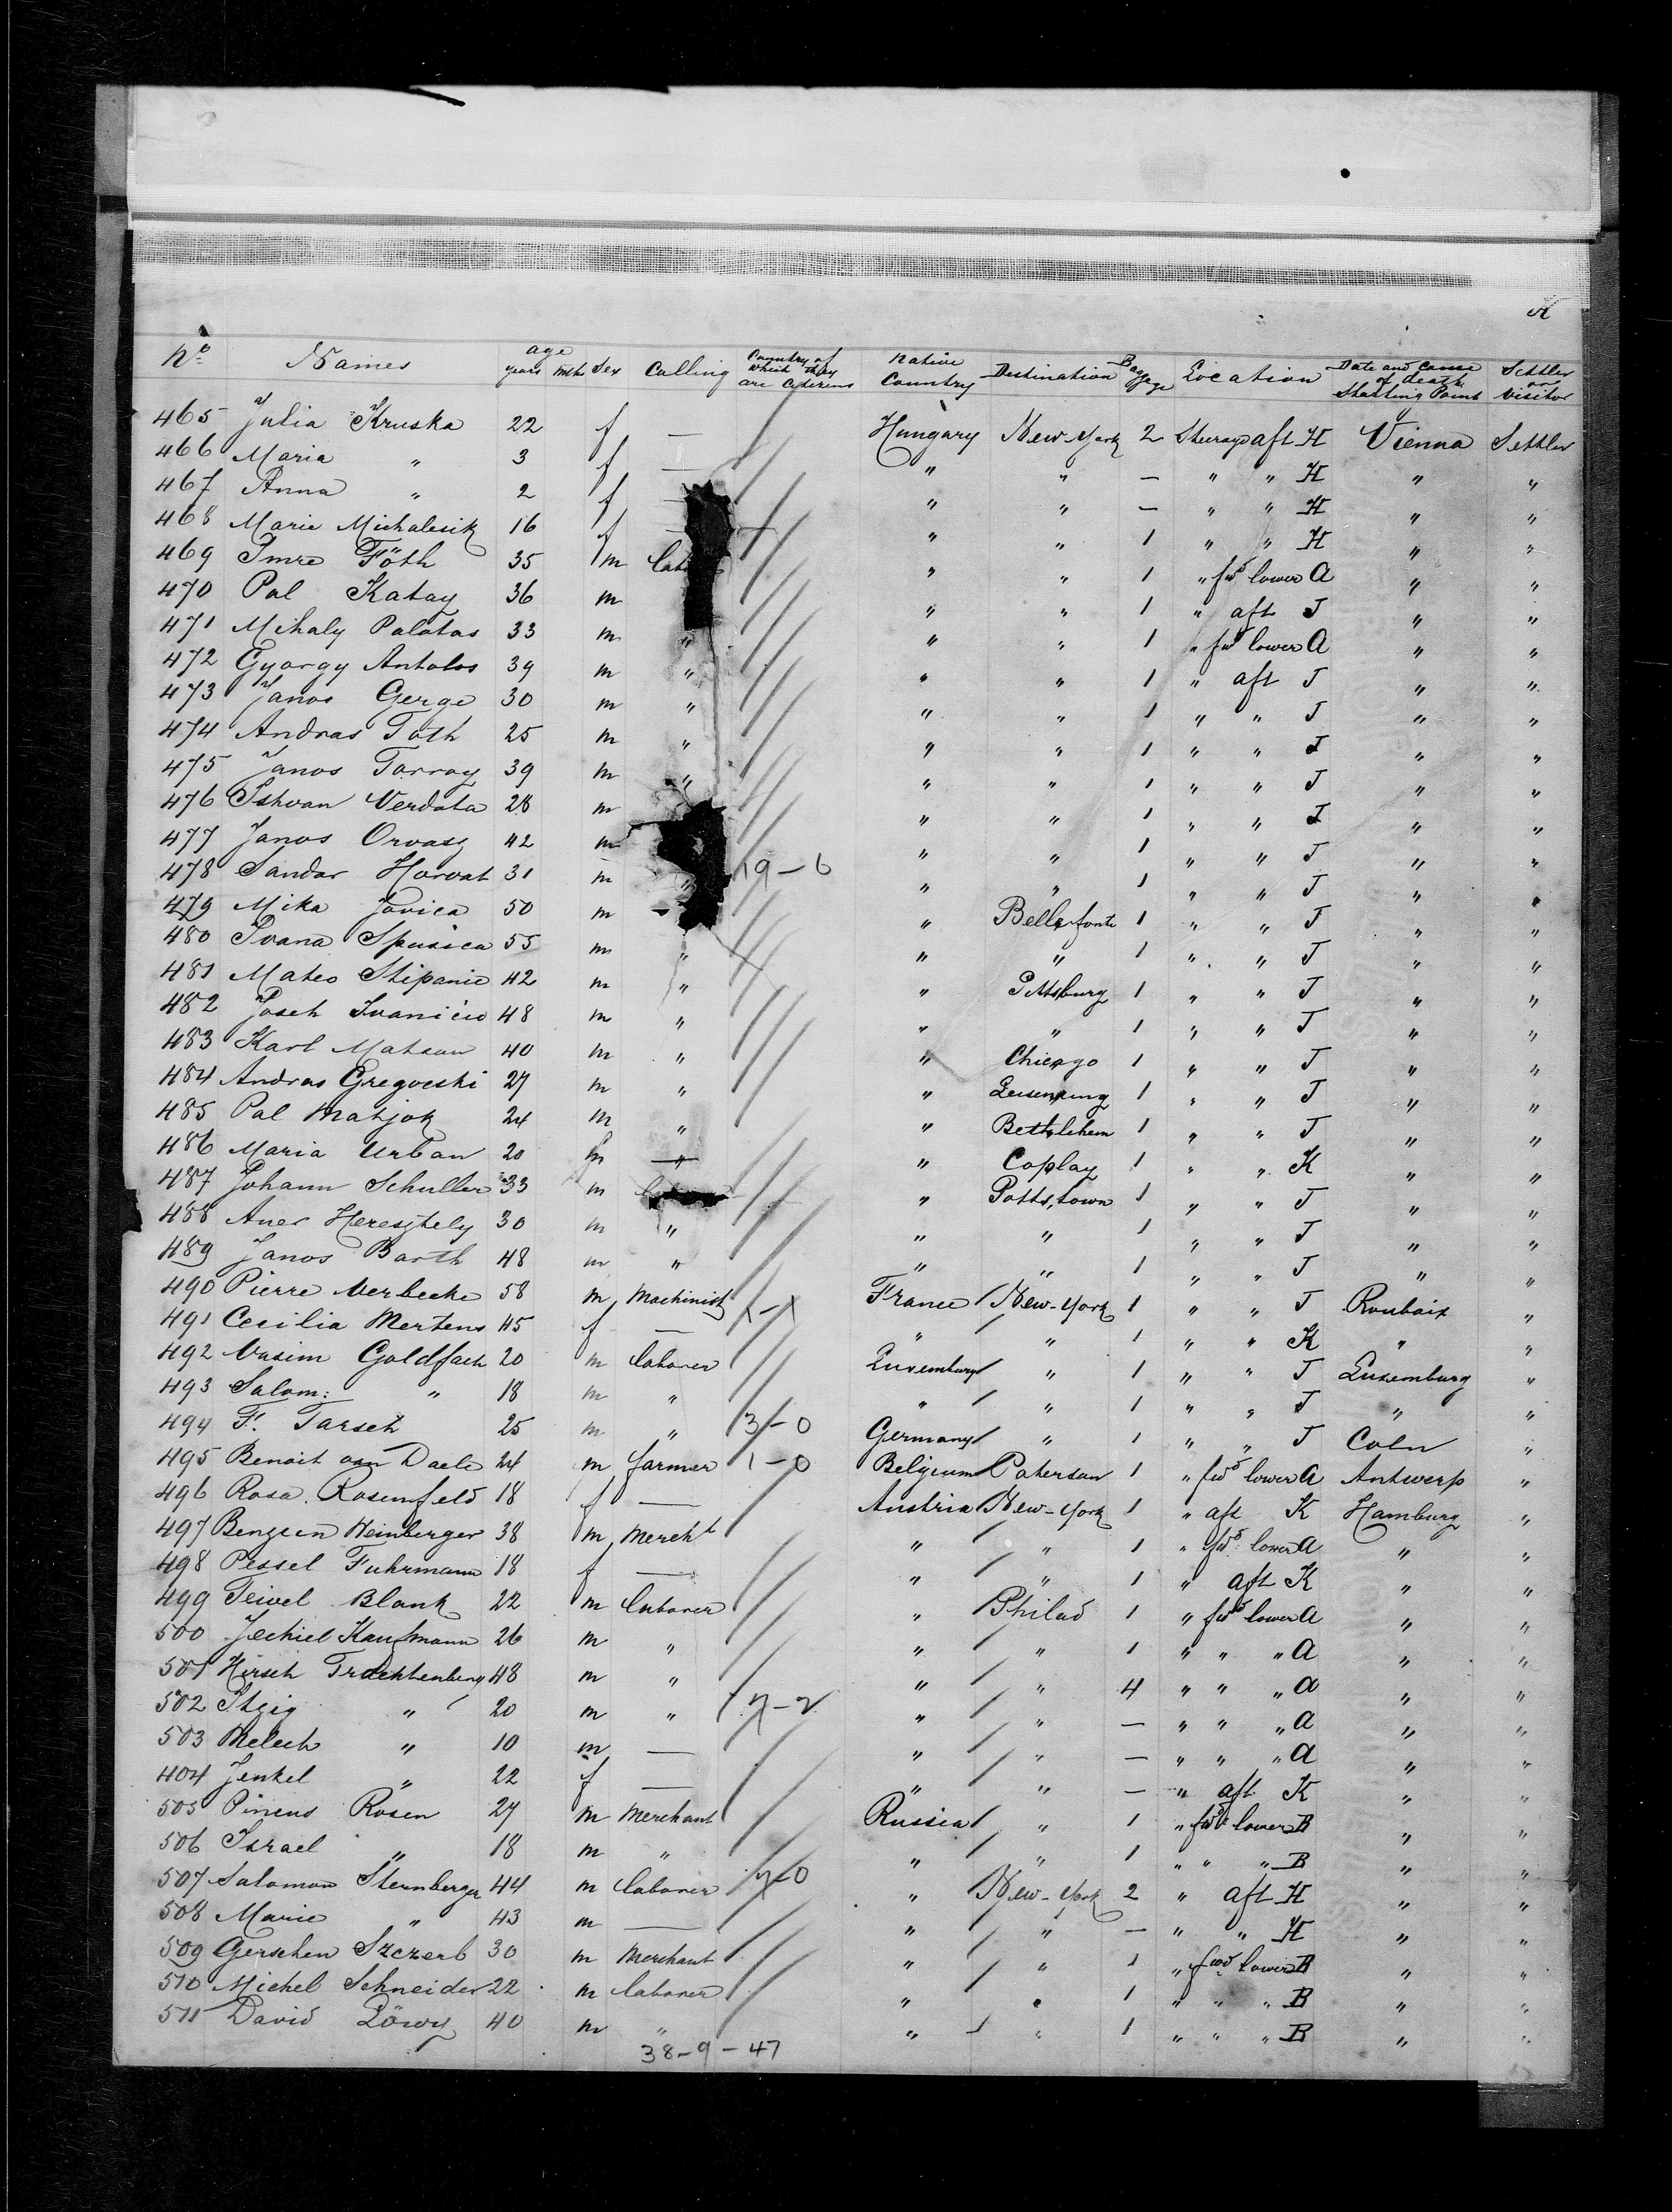 K
No Names age years mths Sex Calling Country of which they are Citizens Native Country Destination Baggage Location Date and Cause of death Starting Point Settler or Visitor
465 Julia Kruska 22 f — Hungary New-York 2 Steerage aft H Vienna Settler
466 Maria " 3 f — " " — " " H " "
467 Anna " 2 f — " " — " " H " "
468 Marie Michalesik 16 f — " " 1 " " H " "
469 Imre Föth 35 m " " 1 " fwd lower A " "
470 Pal Katay 36 m " " 1 " aft J " "
471 Mihaly Palotas 33 m " " " 1 " fwd lower A " "
472 Gyorgy Antolos 39 m " " " 1 " aft J " "
473 Janos Gerge 30 m " " " 1 " " J " "
474 Andras Toth 25 m " " " 1 " " J " "
475 Janos Tarray 39 m " " " 1 " " J " "
476 Istvan Verdata 28 m " " 1 " " J " "
477 Janos Orvasz 42 m " " 1 " " J " "
478 Sandor Horvat 31 m " 19-6 " " 1 " " J " "
479 Mika Jovica 50 m " Bellefonte 1 " " J " "
480 Ivana Spusica 55 m " " " 1 " " J " "
481 Mateo Stipanic 42 m " " Pittsburg 1 " " J " "
482 Joseh Ivanicic 48 m " " " 1 " " J " "
483 Karl Matsun 40 m " " Chicago 1 " " J " "
484 Andras Gregoeski 27 m " " Leisenring 1 " " J " "
485 Pal Matjok 24 m " " Bethlehem 1 " " J " "
486 Maria Urban 20 f — " Coplay 1 " " K " "
487 Johann Schuller 33 m " Pottstown 1 " " J " "
488 Aner Heresztely 30 m " " " 1 " " J " "
489 Janos Barth 48 m " " " 1 " " J " "
490 Pierre Verbecke 58 m Machinist 1-1 France New-York 1 " " J Roubaix "
491 Cecilia Mertens 45 f — " " 1 " " K " "
492 Vusim Goldfach 20 m laborer Luxemburg " 1 " " J Luxemburg "
493 Salom: " 18 m " " " 1 " " J " "
494 F. Tarsch 25 m " 3-0 Germany " 1 " " J Coln "
495 Benoit van Daele 24 m farmer 1-0 Belgium Paterson 1 " fwd lower A Antwerp "
496 Rosa Rosenfeld 18 f — Austria New-York 1 " aft K Hamburg "
497 Benzien Weinberger 38 m Mercht " " 1 " fwd lower A " "
498 Pessel Fuhrmann 18 f — " " 1 " aft K " "
499 Teivel Blank 22 m laborer " Philad 1 " fwd lower A " "
500 Jechiel Kaufmann 26 m " " " 1 " " " A " "
501 Hirsch Trachtenberg 48 m " " " 4 " " " A " "
502 Itzig " 20 m " 7-2 " " — " " " A " "
503 Melech " 10 m — " " — " " " A " "
404 Jenkel " 22 f — " " — " aft K " "
505 Pineus Rosen 27 m Merchant Russia " 1 " fwd lower B " "
506 Israel " 18 m " " " 1 " " " B " "
507 Salomon Sternberger 44 m laborer 7-0 " New-York 2 " aft H " "
508 Marie " 43 m — " " — " " H " "
509 Gerschen Szczerb 30 m Merchant " " 1 " fwd lower B " "
510 Michel Schneider 22 m laborer " " 1 " " " B " "
511 David Löwy 40 m " " " 1 " " " B " "
38-9-47